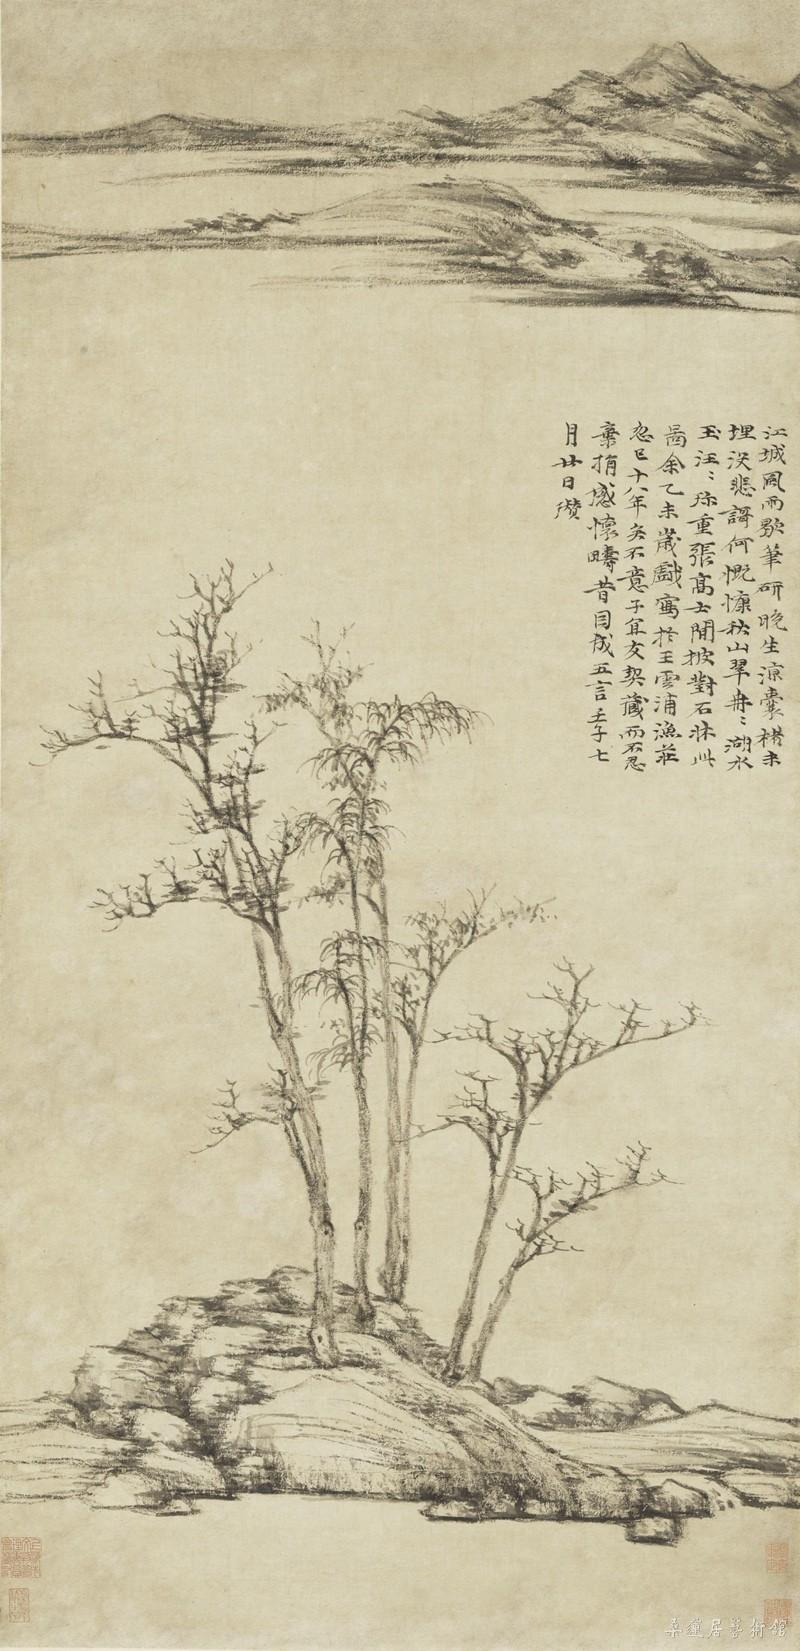 江城風雨歇筆研晚生涼囊楮未
埋沒悲謌何慨慷秋山翠冉〻湖水
玉汪〻珍重張高士閒披對石牀此
啚余乙未歲戲寫於王雲浦漁莊
忽已十八年矣不意子宜友契藏而不忍
棄捐感懷疇昔因成五言壬子七
月廿日瓚
桑蓮居藝術館